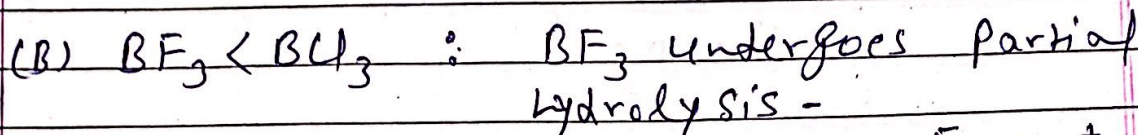 (B) BF₃ < BCl₃ : BF₃ undergoes Partial
hydrolysis -